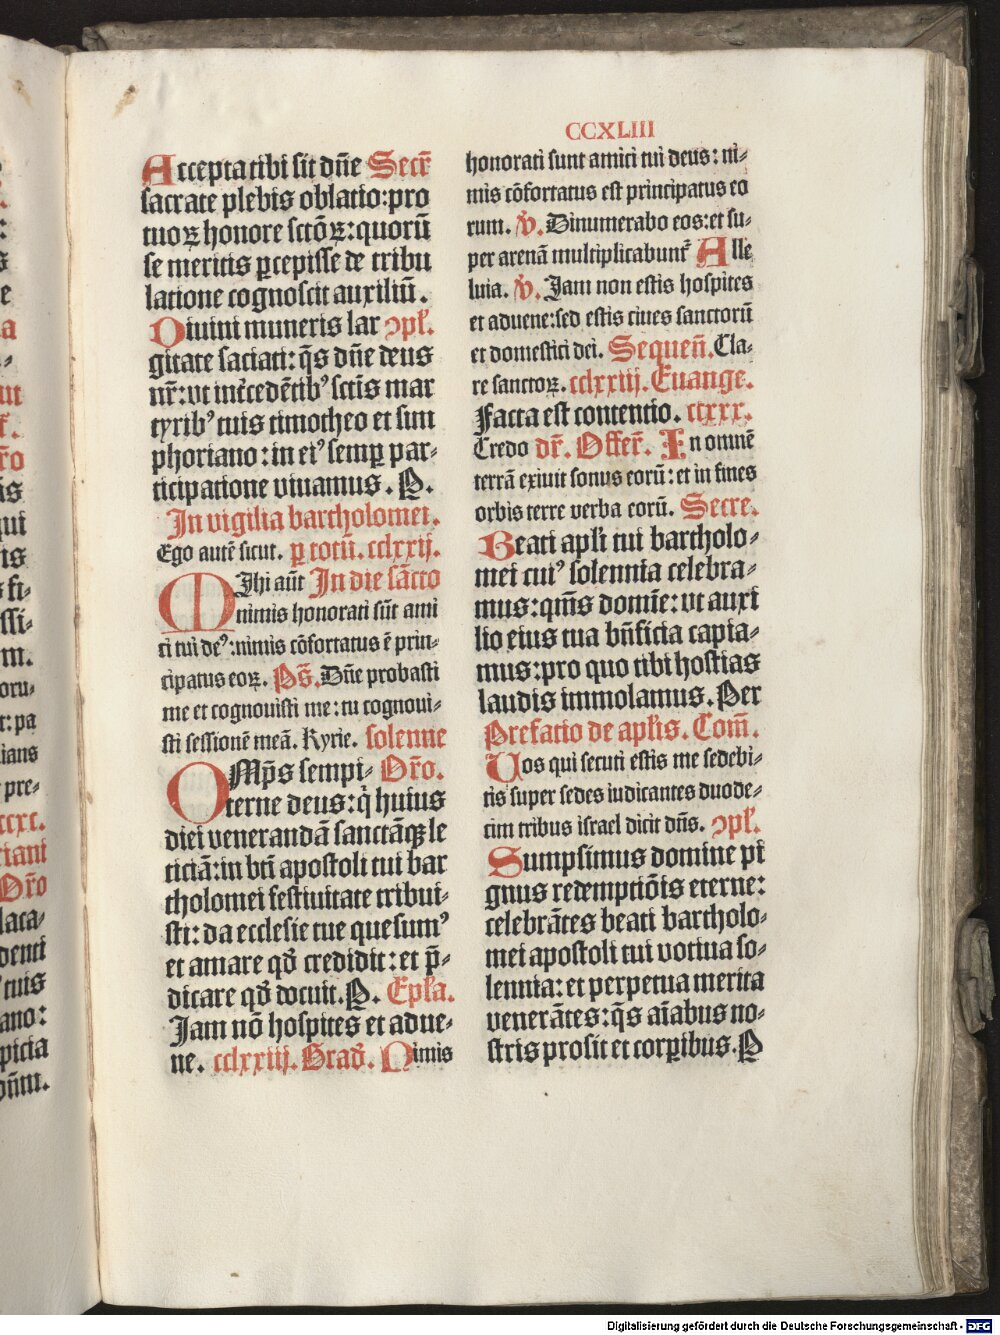 CCXLIII
Accepta tibi sit dn̄e Secr̄
sacrate plebis oblatio: pro
tuoꝝ honore sctōꝝ: quorū
se meritis ꝑcepisse de tribu
latione cognoscit auxiliū.
Diuini muneris lar ↄpl̄.
gitate saciati: q̄s dn̄e deus
nr̄: vt int̄cedētibꝰ sctīs mar
tyribꝰ tuis timotheo et sim
phoriano: in eiꝰ semꝑ par-
ticipatione viuamus. P.
In vigilia bartholomei.
Ego autē sicut. ꝑ totū. cclxxij.
MIhi aūt In die sācto
nimis honorati sūt ami
ci tui deꝰ: nimis cōfortatus ē prin-
cipatus eoꝝ. Ps̄. Dn̄e probasti
me et cognouisti me: tu cognoui-
sti sessionē meā. Kyrie. solenne
OMp̄s sempi- Or̄o.
terne deus: q̇ huius
diei venerandā sanctāqꝫ le
ticiā: in bt̄i apostoli tui bar
tholomei festiuitate tribui-
sti: da ecclesie tue quesumꝰ
et amare qd̄ credidit: et p̄-
dicare qd̄ docuit. P. Epl̄a.
Jam nō hospites et adue-
ne. cclxxiij. Grad̄. Nimis
honorati sunt amici tui deus: ni-
mis cōfortatus est principatus eo
rum. v̄. Dinumerabo eos: et su-
per arenā multiplicabunt᷑ Alle
luia. v̄. Jam non estis hospites
et aduene: sed estis ciues sanctorū
et domestici dei. Sequen̄. Cla-
re sanctoꝝ. cclxxiij. Euange.
Facta est contentio. ccxxx.
Credo dr̄. Offer̄. In omnē
terrā exiuit sonus eorū: et in fines
orbis terre verba eorū. Secre.
Beati apl̄i tui bartholo-
mei cuiꝰ solennia celebra-
mus: qm̄s domīe: vt auxi
lio eius tua bn̄ficia capia-
mus: pro quo tibi hostias
laudis immolamus. Per
Prefatio de apl̄is. Com̄.
Uos qui secuti estis me sedebi-
tis super sedes iudicantes duode-
cim tribus israel dicit dn̄s. ↄpl̄.
Sumpsimus domine pi
gnus redemptiōis eterne:
celebrātes beati bartholo-
mei apostoli tui votiua so-
lennia: et perpetua merita
venerātes: q̄s aīabus no-
stris prosit et corꝑibus. P
Digitalisierung gefördert durch die Deutsche Forschungsgemeinschaft - DFG